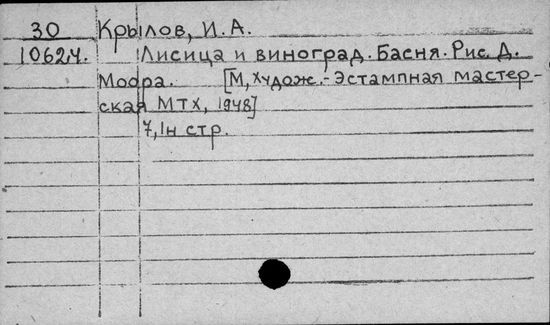 30 Крылов, И. А.
10624. Лисица и виноград. Басня. Рис. Д.
Моора. [М, Худож.-Эстампная мастер-
ская МТХ, 1948]
7, 1н стр.